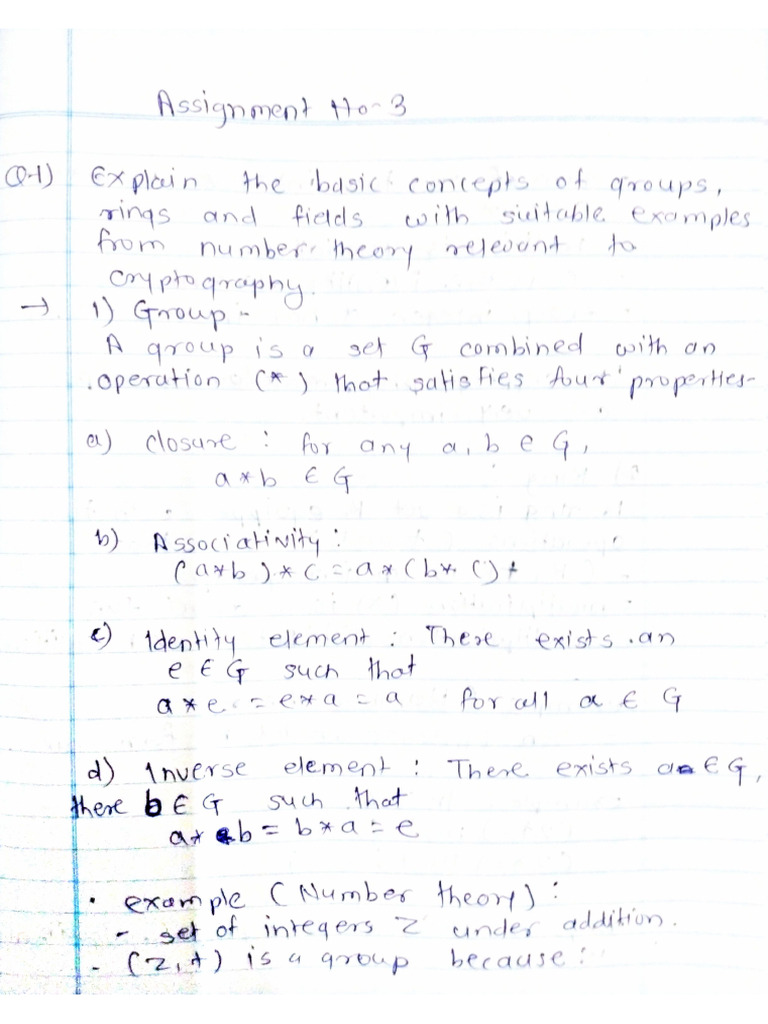 Assignment No-3
Q-1) Explain the basic concepts of groups,
rings and fields with suitable examples
from number theory relevant to
cryptography.
→ 1) Group -
A group is a set G combined with an
operation (*) that satisfies four properties-
a) closure : for any a, b ∈ G,
a * b ∈ G
b) Associativity :
(a*b) * c = a * (b * c)
c) Identity element : There exists an
e ∈ G such that
a * e = e * a = a for all a ∈ G
d) Inverse element : There exists a ∈ G,
there b ∈ G such that
a * b = b * a = e
• example (Number theory) :
- set of integers Z under addition.
- (Z, +) is a group because :